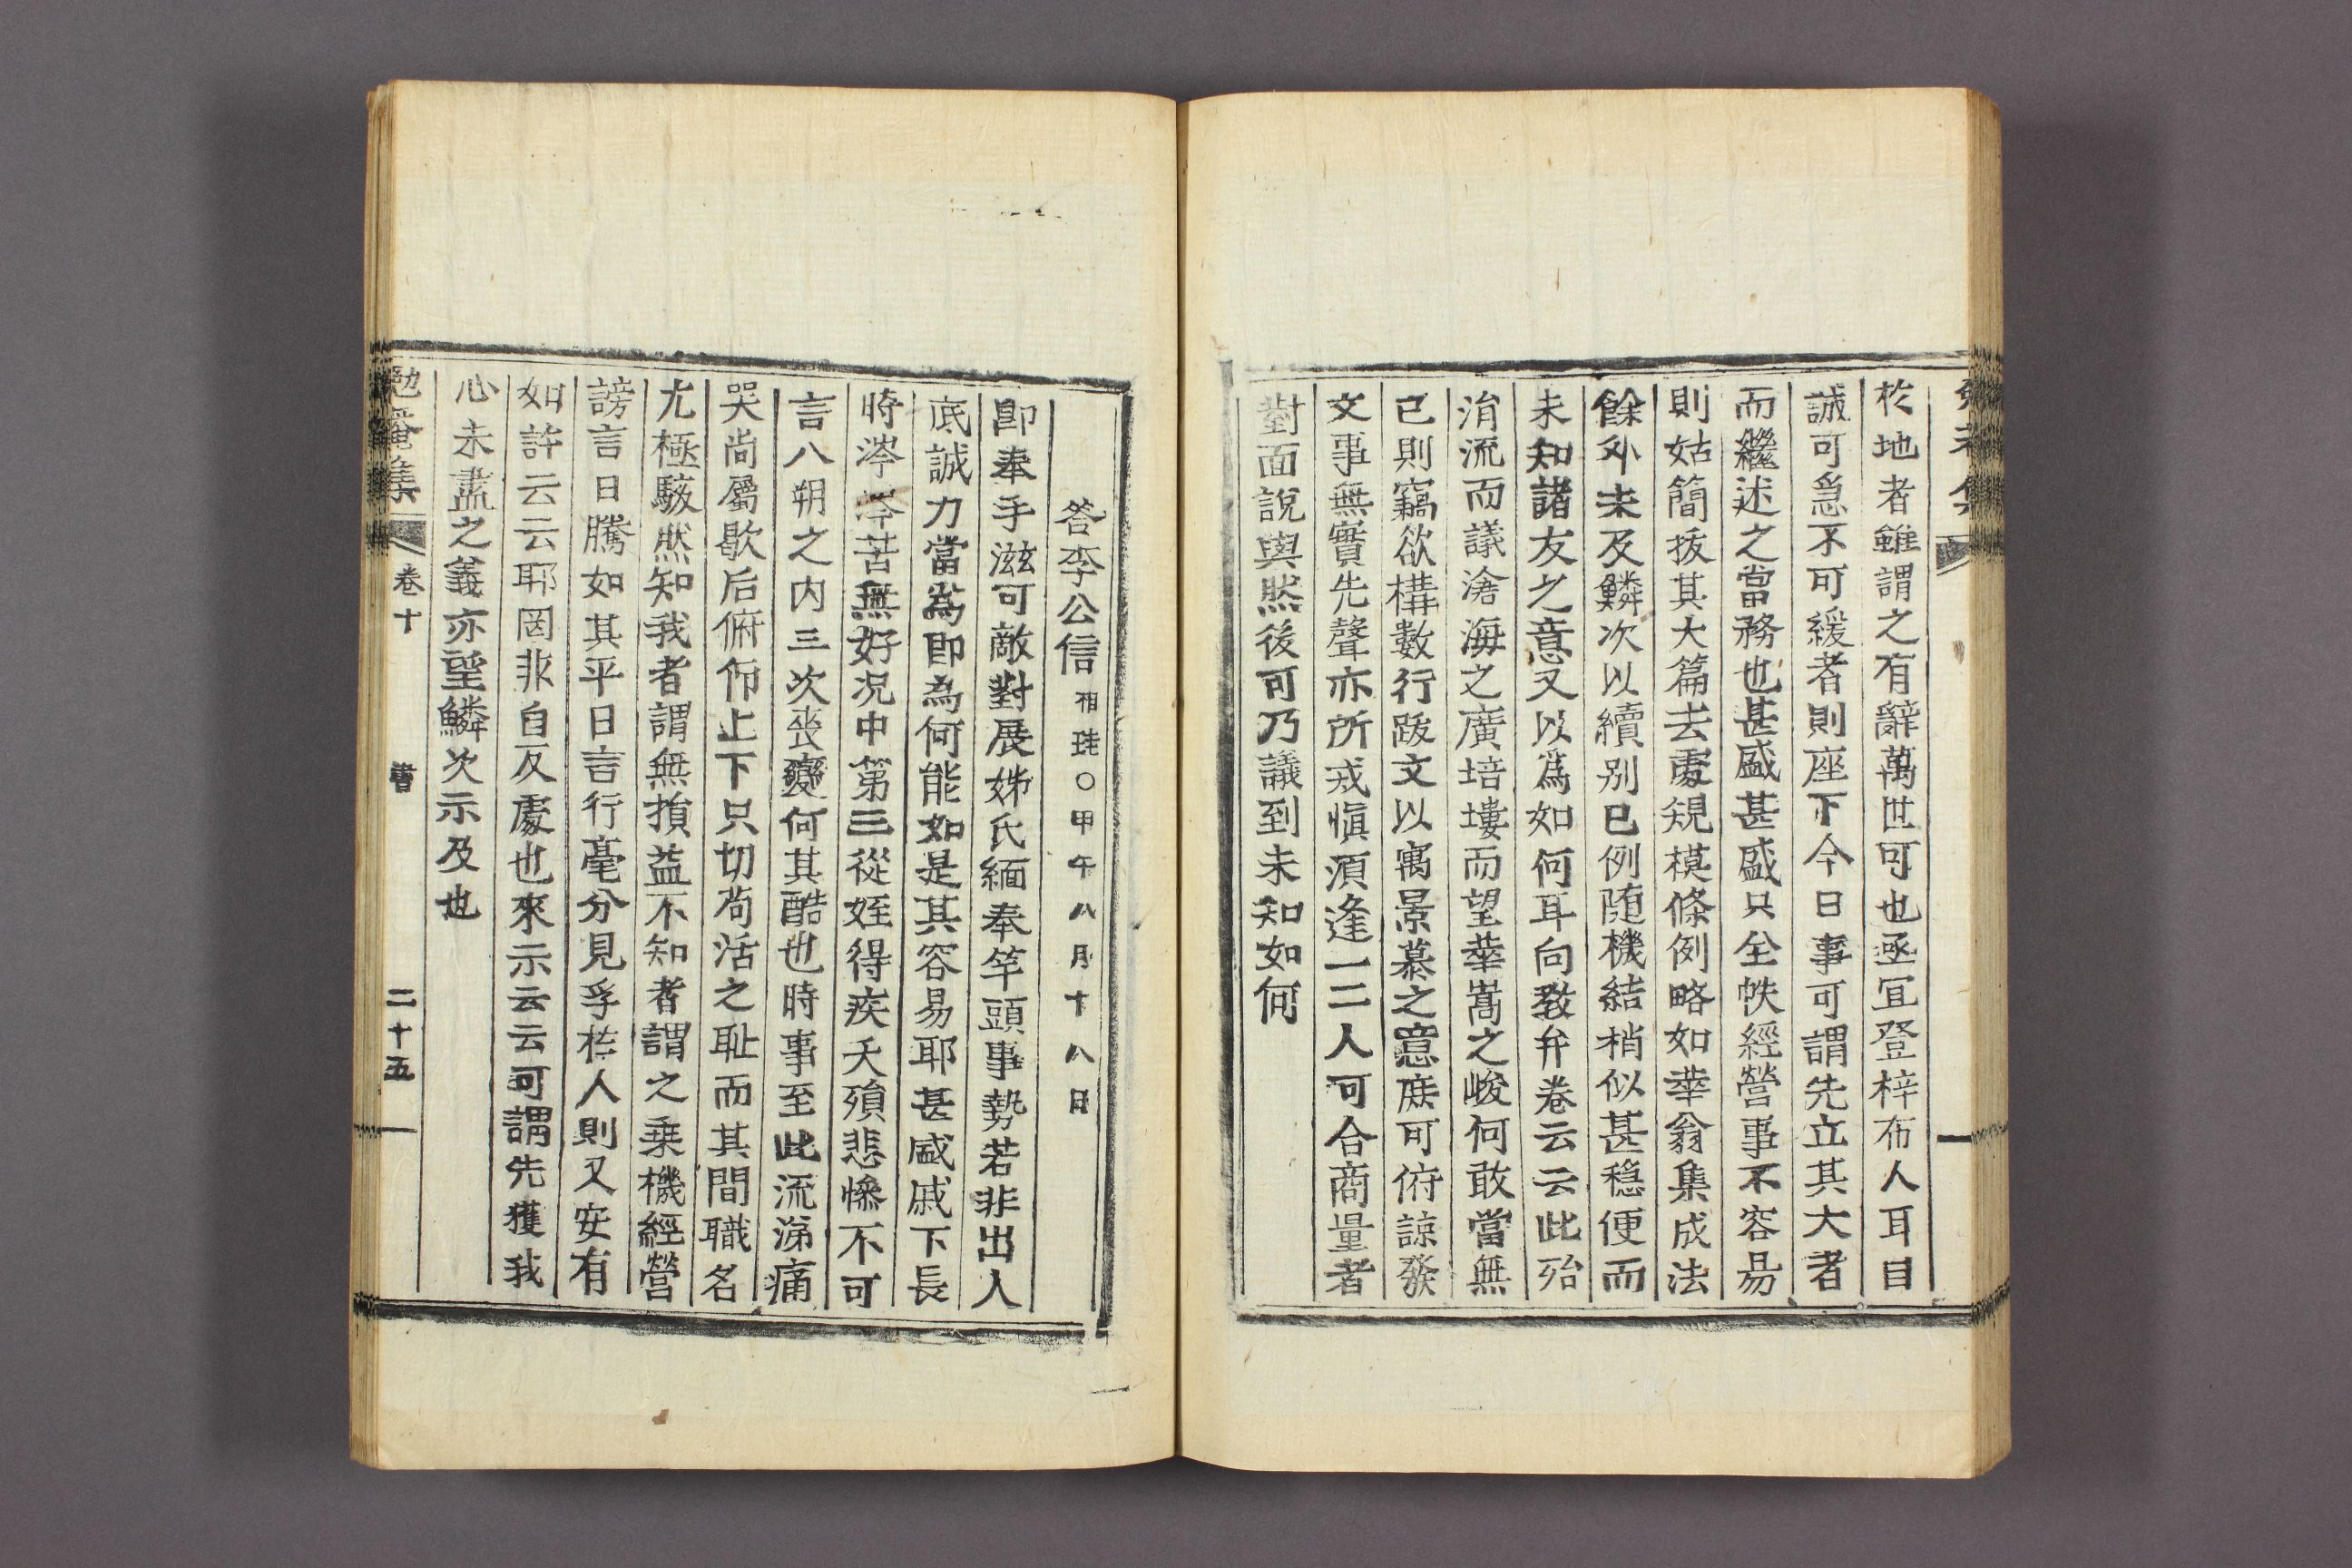 於地者雖謂之有辭萬世可也亟宜登梓布人耳目
誠可急不可緩者則座下今日事可謂先立其大者
而繼述之當務也甚盛甚盛只全帙經營事不容易
則姑簡拔其大篇去處規模條例略如華翁集成法
餘外未及鱗次以續別已例随機結梢似甚穩便而
未知諸友之意又以爲如何耳向教弁卷云云此殆
涓流而議滄海之廣培塿而望華嵩之峻何敢當無
已則竊欲構數行跋文以寓景慕之意庶可俯諒發
文事無實先聲亦所戒愼須逢一二人可合商量者
對面說與然後可乃議到未知如何
答李公信 相珪○甲午八月十八日
卽奉手滋可敵對展姊氏緬奉竿頭事勢若非出人
底誠力當為卽為何能如是其容易耶甚感戚下長
時涔涔苦無好况中第三從姪得疾夭殞悲慘不可
言八朔之内三次喪變何其酷也時事至此流涕痛
哭尚屬歇后俯仰上下只切苟活之恥而其間職名
尤極駭然知我者謂無損益不知者謂之乗機經營
謗言日騰如其平日言行毫分見孚於人則又安有
如許云云耶罔非自反處也來示云云可謂先獲我
心未盡之義亦望鱗次示及也
勉菴集 卷十 書 二十五